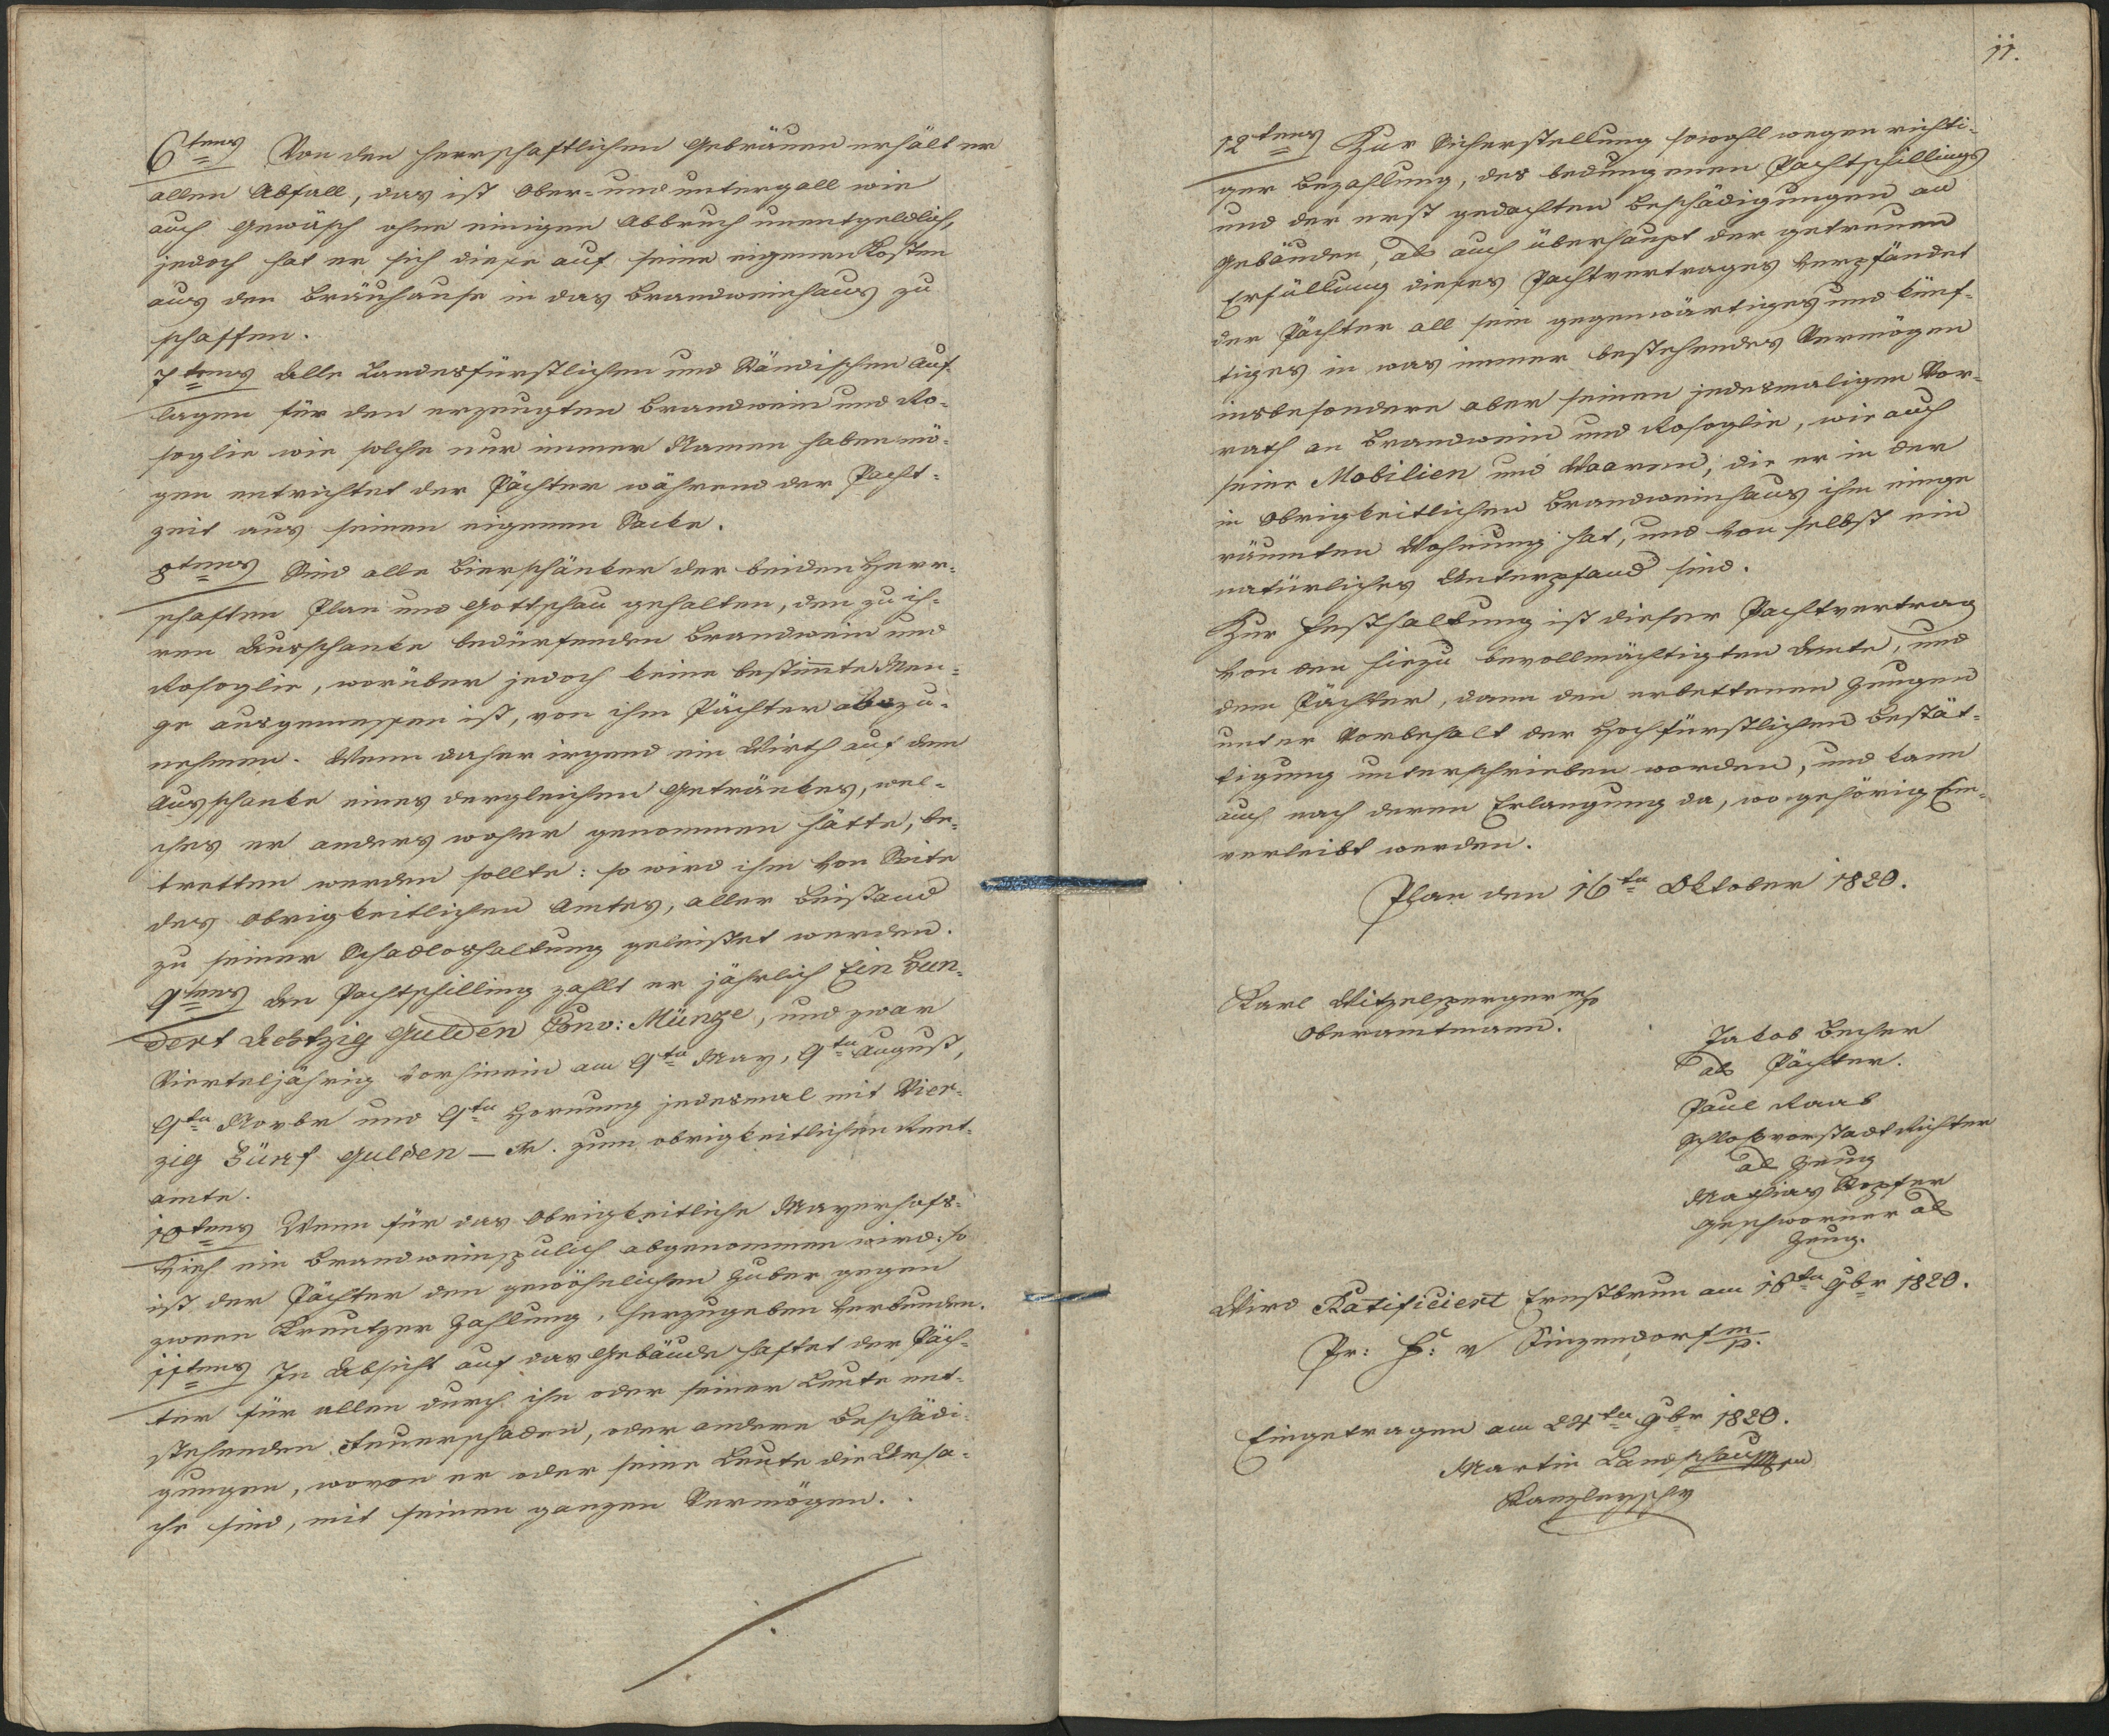 6tens Von den herrschaftlichen Gebräuen erhält er
allen Abfall, das ist Ober- und untergall wie
auch Gewäsch ohne einigen Abbruch unentgeldlich,
jedoch hat er sich diese auf seine eigenen Kosten
aus den Bräuhause in das Brandweinhaus zu
schaffen.
7tens Alle Landesfürstlichen und Ständischen Auf-
lagen für den erzeugten Brandwein und Ro-
soglie wie solche nur immer Namen haben mö-
gen entrichtet der Pächter während der Pacht-
zeit aus seinen eigenen Sacke.
8tens Sind alle Bierschänker der beiden Herr-
schaften Plan und Gottschau gehalten, den zu ih-
ren Ausschanke bedürfenden Brandwein und
Rosoglie, worüber jedoch keine bestimte Men-
ge ausgemessen ist, von ihm Pächter abzu-
nehmen. Wenn daher irgend ein Wirth auf dem
Ausschanke eines dergleichen Getränkes, wel-
ches er anders woher genommen hätte, be-
tretten werden sollte: so wird ihm von Seite
des Obrigkeitlichen Amtes, aller Beistand
zu seiner Schadloshaltung geleistet werden.
9tens Den Pachtschilling zahlt er jährlich Ein Hun-
dert Achtzig Gulden Conv: Münze, und zwar
Vierteljährig vorhinein am 9ten May, 9ten August,
9ten Novbr und 9ten Hornung jedesmal mit Vier-
zig Fünf Gulden — Xr. zum obrigkeitlichen Rent-
amte.
10tens Wenn für das Obrigkeitliche Mayerhofs-
Vieh ein Brandweinspulich abgenommen wird: so
ist der Pächter den gewöhnlichen Zuber gegen
zween Kreutzer Zahlung, herzugeben verbunden.
11tens In Absicht auf das Gebäude haftet der Päch-
ter für allen durch ihn oder seiner Leute ent-
stehenden Feuerschaden, oder andere Beschädi-
gungen, wovon er oder seine Leute die Ursa-
che sind, mit seinen ganzen Vermögen.
11.
12tens Zur Sicherstellung sowohl wegen richti-
ger Bezahlung, des bedungenen Pachtschillings
und der erst gedachten Beschädigungen an
Gebäuden, als auch überhaupt der getreuen
Erfüllung dieses Pachtvertrages verpfändet
der Pächter all sein gegenwärtiges und künf-
tiges in was immer bestehendes Vermögen
insbesondere aber seinen jedesmaligen Vor-
rath an Brandwein und Rosoglie, wie auch
seine Mobilien und Waaren, die er in der
in Obrigkeitlichen Brandweinhaus ihm einge
räumten Wohnung hat, und von selbst ein
natürliches Unterpfand sind.
Zur Festhaltung ist dieser Pachtvertrag
von den hiezu bevollmächtigten Amte, und
dem Pächter, dann den erbettenen Zeugen
unter Vorbehalt der Hochfürstlichen Bestät-
tigung unterschrieben worden, und kann
auch nach deren Erlangung da, wo gehörig Ein-
verleibt werden.
Plan den 16ten Oktober 1820.
Karl Witzelsperger mp
Oberamtmann.
Jakob Becher
als Pächter.
Paul Raab
Schloßvorstadt Richter
als Zeug
Mathias
geschworner als
Zeug.
Wird Ratificiert Ernstbrun am 18ten 9br 1820.
Pr: F: v Sinzendorf mp.
Eingetragen am 24ten 9br 1820.
Martin
Kanzleyschr